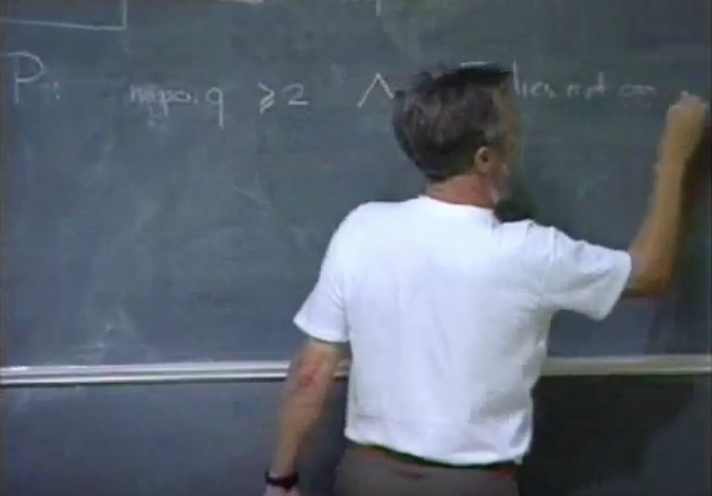 P: mpo.q ⩾ 2 ∧ lies not on